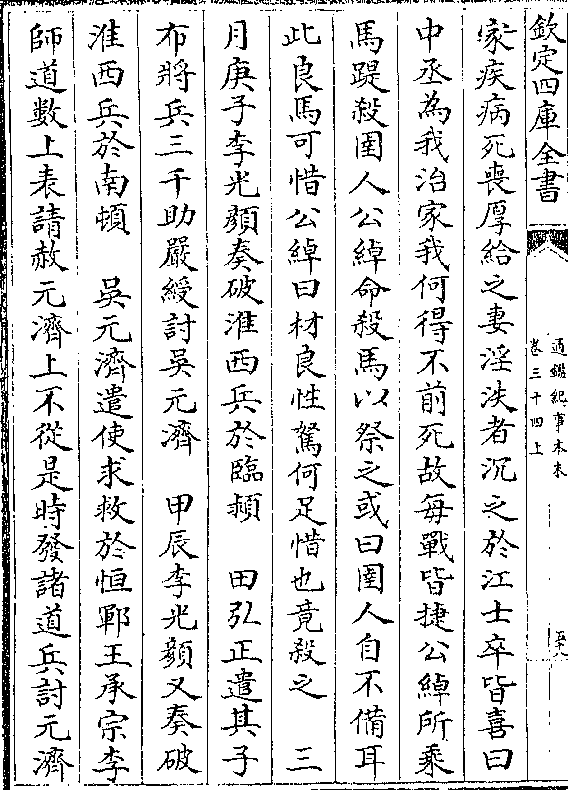 欽定四庫全書
通鑑紀事本末
卷三十四上
五十八
家疾病死喪厚給之妻淫泆者沉之於江士卒皆喜曰
中丞為我治家我何得不前死故每戰皆捷公綽所乘
馬踶殺圉人公綽命殺馬以祭之或曰圉人自不備耳
此良馬可惜公綽曰材良性駑何足惜也竟殺之　三
月庚子李光顔奏破淮西兵於臨潁　田弘正遣其子
布將兵三千助嚴綬討吳元濟　甲辰李光顔又奏破
淮西兵於南頓　吳元濟遣使求救於恒鄆王承宗李
師道數上表請赦元濟上不從是時發諸道兵討元濟